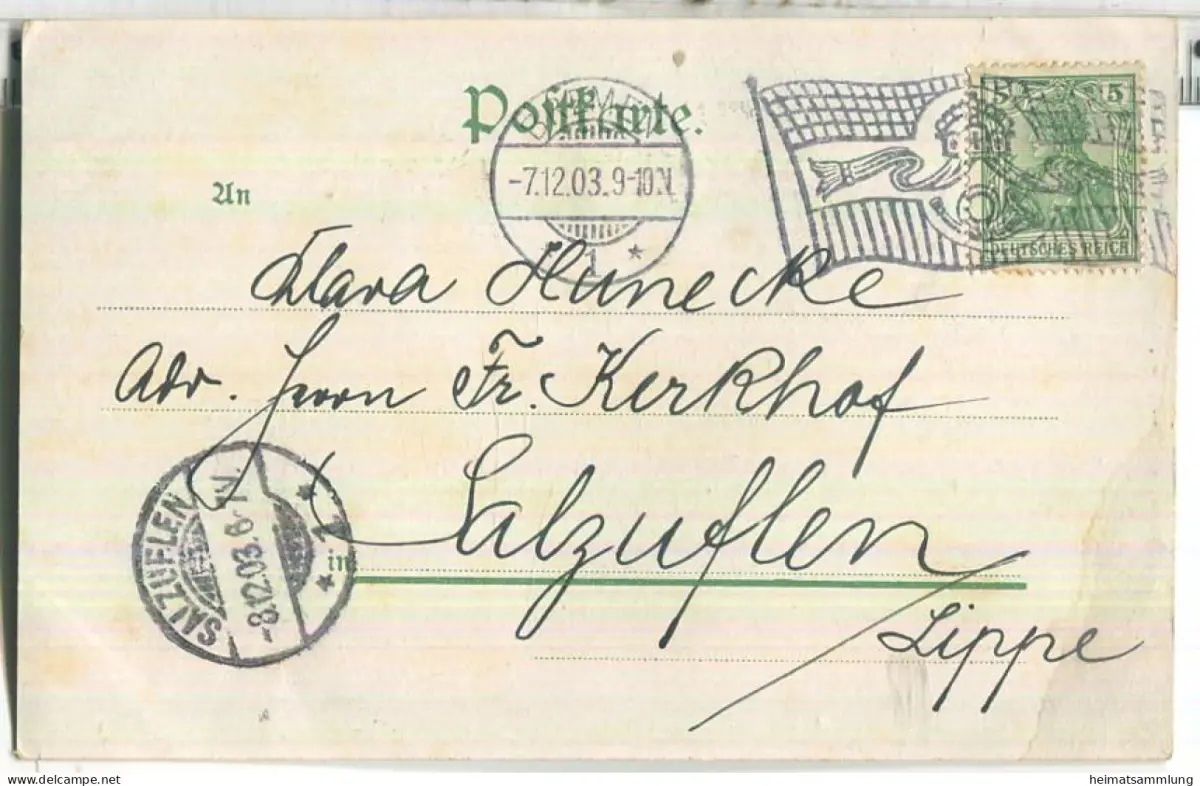 Postkarte.
-7.12.03.9-10.N.
1
5 5
DEUTSCHES REICH
An
Klara Hunecke
Adr. Herrn Fr. Kerkhof
in Salzuflen
Lippe
SALZUFLEN
-8.12.03.6-7V.
1
heimatsammlung